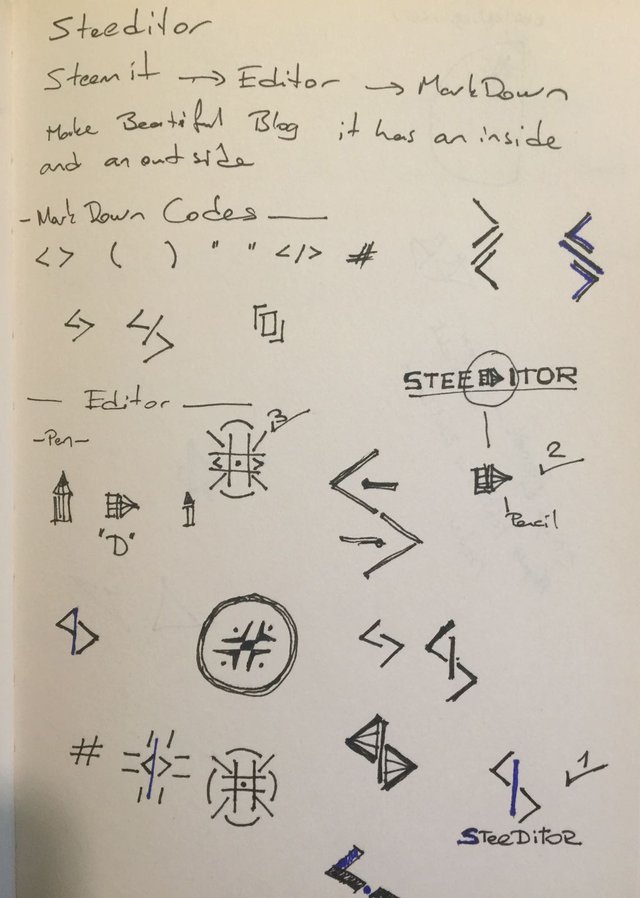 Steeditor
Steemit → Editor → MarkDown
Make Beatiful Blog it has an inside
and an out side
- Mark Down Codes -
< > ( ) " " </> #
- Editor -
STEEDITOR
3
- Pen -
2
"D"
Pencil
#
1
STeeDiTOR